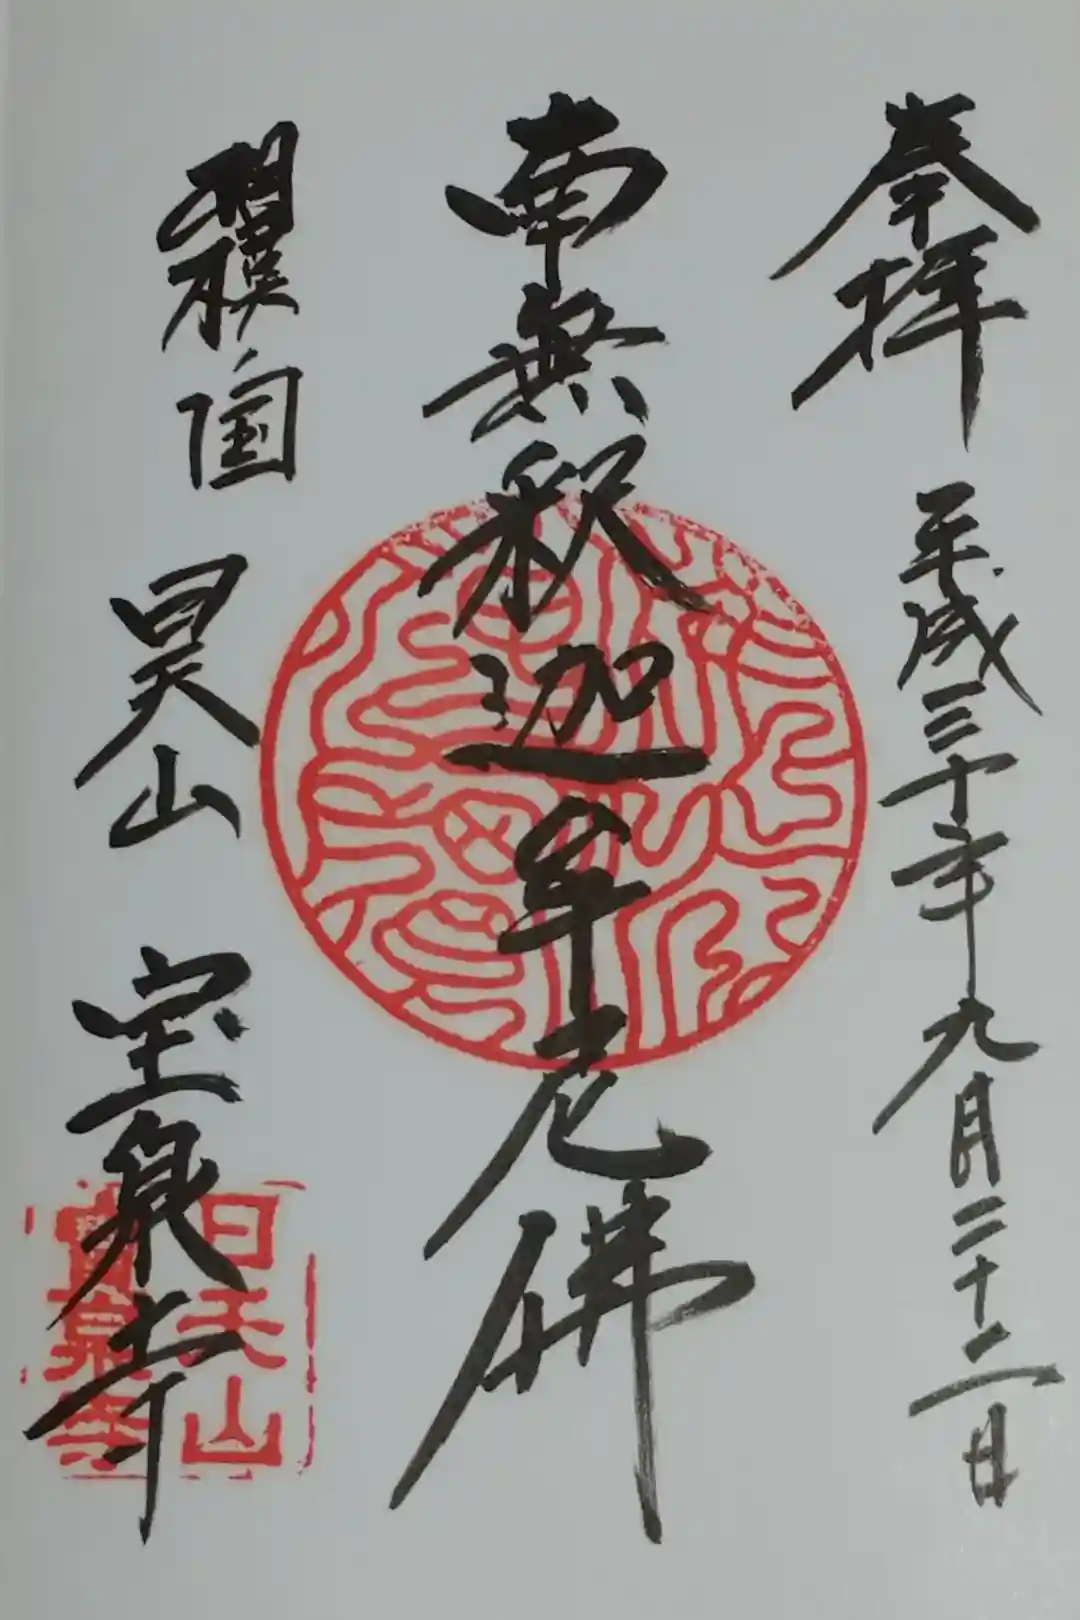 奉拝 平成三十年九月二十二日
南無釈迦牟尼佛
相模国 昊山 宝泉寺
昊山
寶泉寺